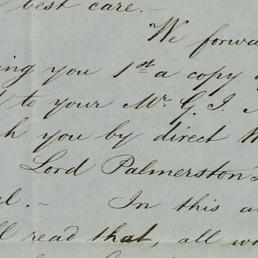 best care. —
We forwa
ing you 1st a copy
to your Mr. G. J.
h you by direct
Lord Palmerston
l. — In this a
ll read that, all w